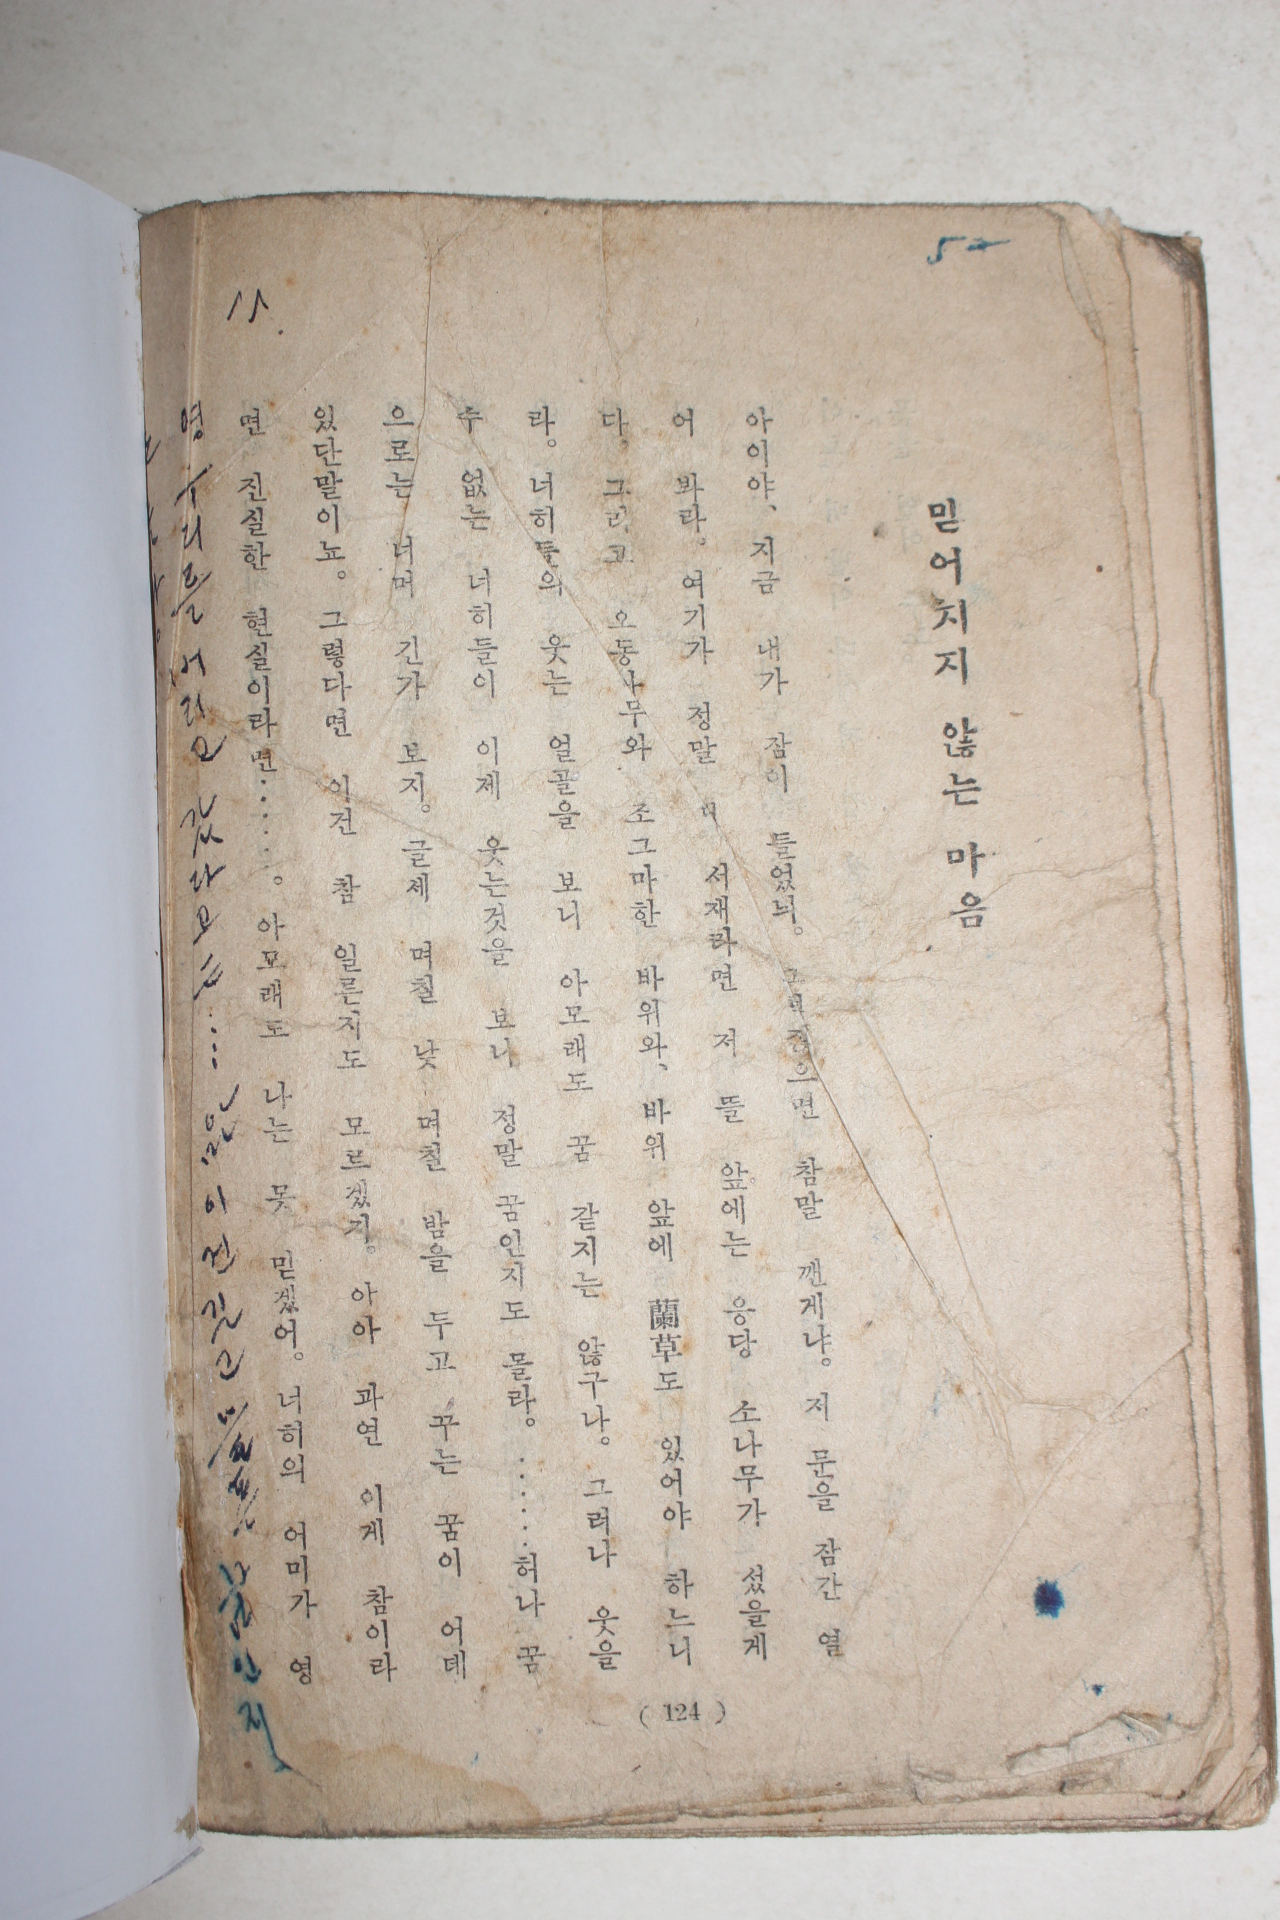 52
믿어치지 않는 마음
아이야、 지금 내가 잠이 들었늬。 그렇잖으면 참말 깬게냐。 저 문을 잠간 열
어 봐라。 여기가 정말 내 서재라면 저 뜰 앞에는 응당 소나무가 섰을게
다。 그리고 오동나무와 조그마한 바위와、 바위 앞에 蘭草도 있어야 하느니
라。 너히들의 웃는 얼골을 보니 아모래도 꿈 같지는 않구나。 그러나 웃을
수 없는 너히들이 이제 웃는것을 보니 정말 꿈인지도 몰라。……허나 꿈
으로는 너머 긴가 보지。 글세 며칠 낮 며칠 밤을 두고 꾸는 꿈이 어데
있단말이뇨。 그렇다면 이건 참 일른지도 모르겠기。 아아 과연 이게 참이라
면 진실한 현실이라면……。 아모래도 나는 못 믿겠어。 너히의 어미가 영
영 우리를 버리고 갔다고는…… 이건 꿈인지
( 124 )